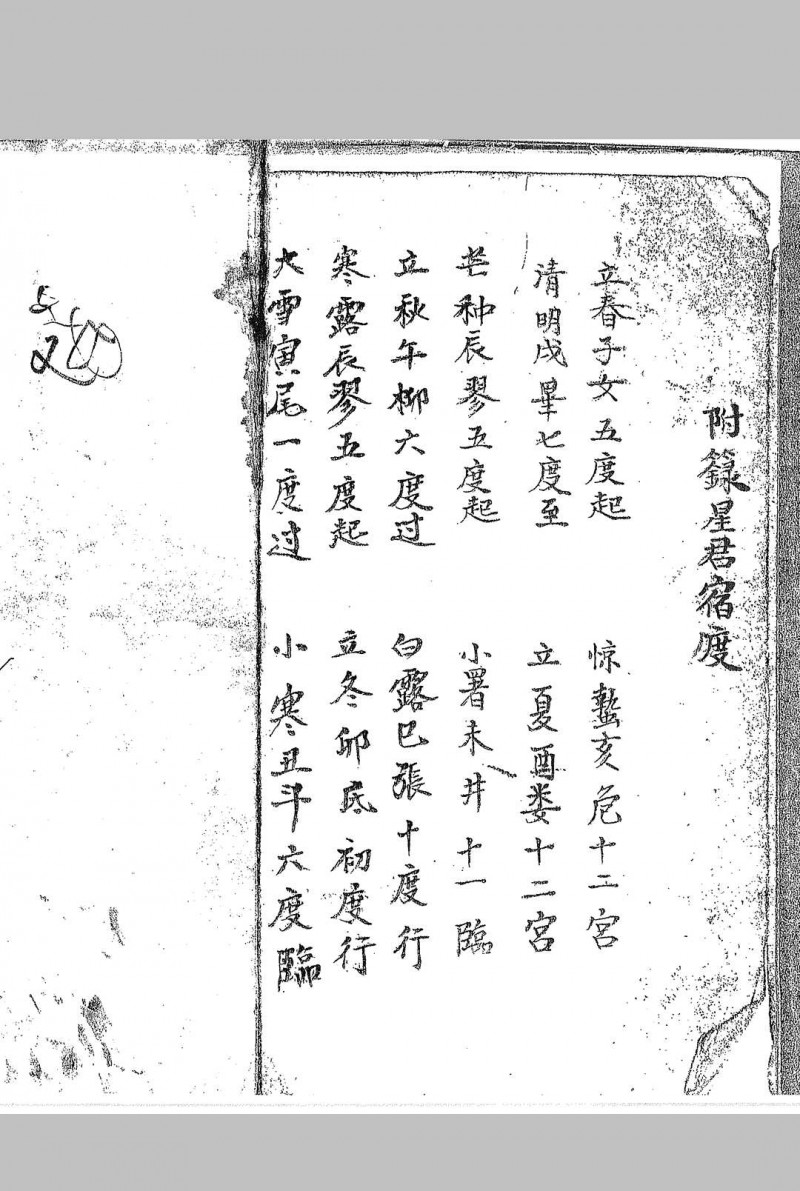 附籙星君宿度
立春子女五度起 惊蟄亥危十二宮
清明戌畢七度至 立夏酉娄十二宮
芒种辰翏五度起 小署未井十一臨
立秋午柳六度过 白露巳張十度行
寒露辰翏五度起 立冬卯底初度行
大雪寅尾一度过 小寒丑斗六度臨